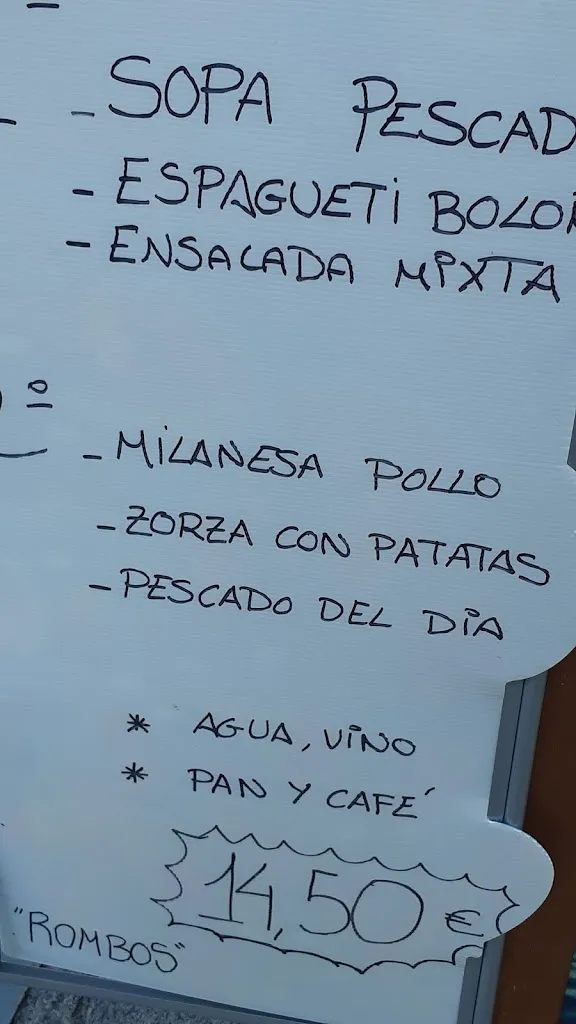 - SOPA PESCAD
- ESPAGUETI BOLO
- ENSALADA MIXTA
º
- MILANESA POLLO
- ZORZA CON PATATAS
- PESCADO DEL DIA
* AGUA, VINO
* PAN Y CAFÉ
14,50 €
"ROMBOS"